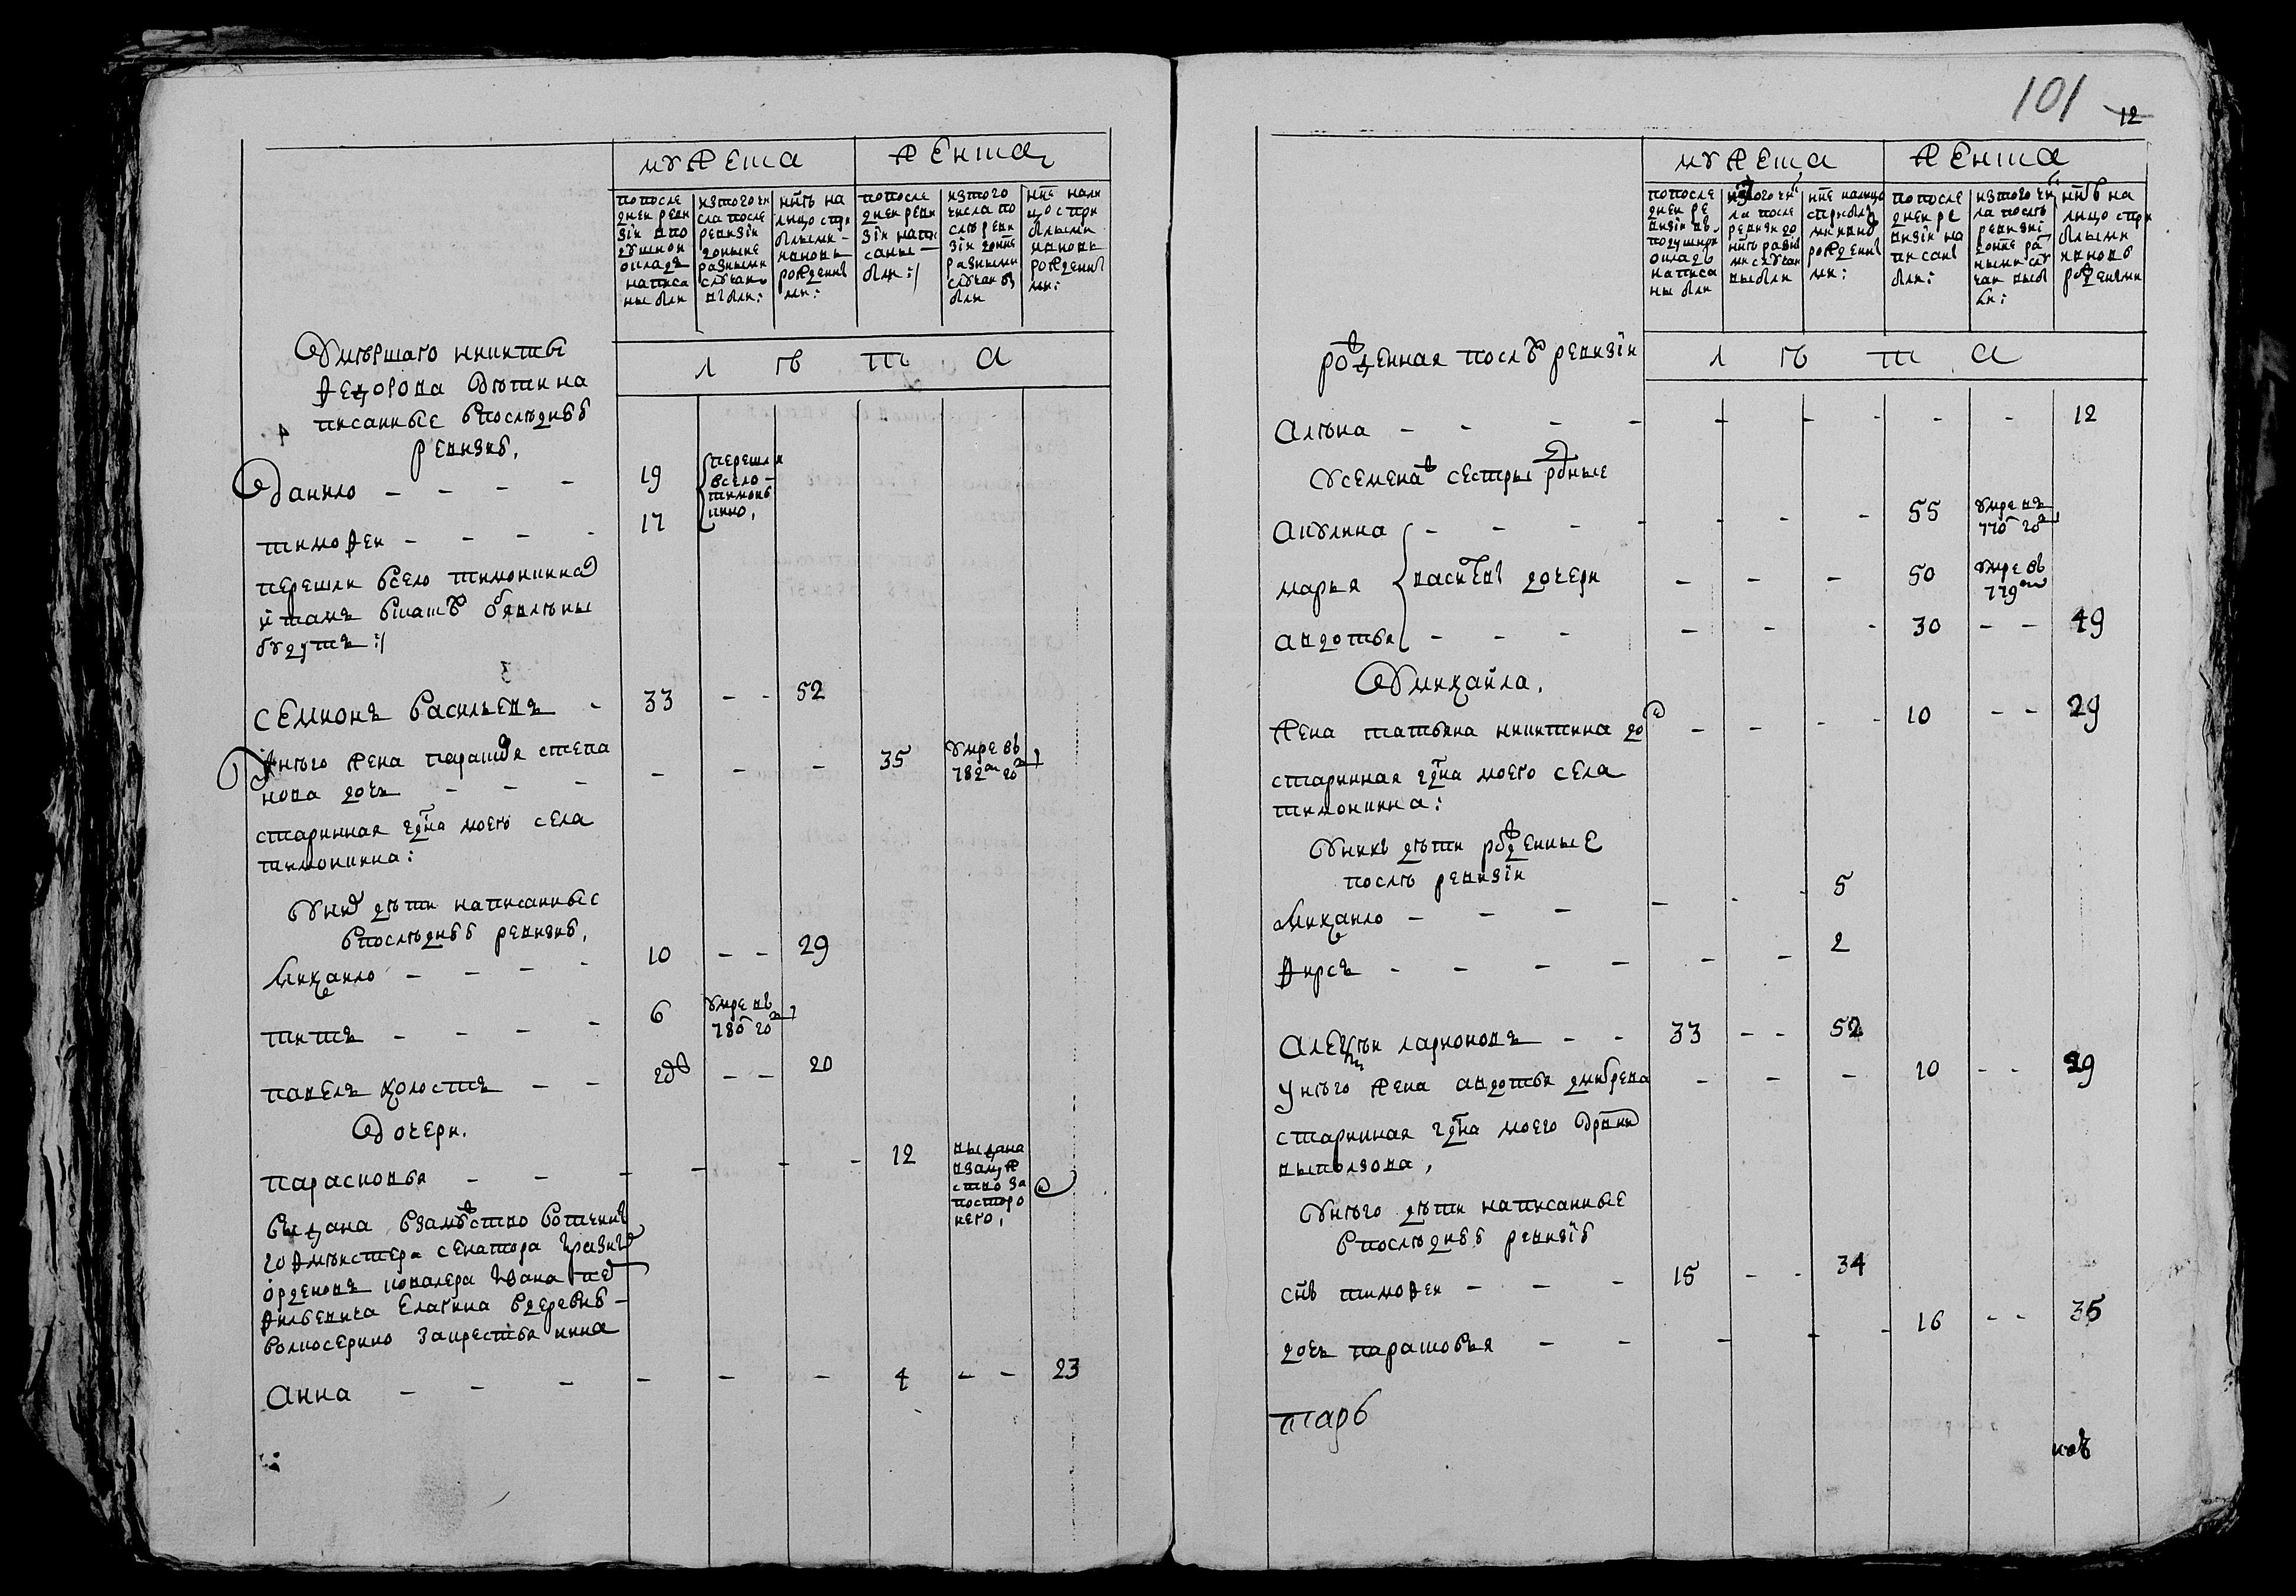 мужеска
женска
по после
дней реви
зїи в по
душном
окладѣ
написа
ны были
из того чи
сла после
ревизїи
доныне
разными
случаи
выбыли:
ннѣ на
лицо с при
былыми
и вновь
рожденны
ми:
по после
дней реви
зїи напи
саны
были:/
из того
числа по
слѣ реви
зїи доннѣ
разными
случаи вы
были
нне нали
цо с при
былыми
и вновь
рожденны
ми:
лѣта
У умѣршаго никиты
федорова дѣти на
писанные в послѣдней
4
ревизїи,
Данило - - - -
19
перешли
в село
тимони
нино,
тимофеи - - - -
17
перешли в село тимонинно
и тамъ в скаскѣ объявлены
будутъ:/
семионъ васильевъ -
33 - - 52
У него жена парасковья степа
нова дочь - - -
- - - 35
умре въ
782м году
старинная гдна моего села
тимонина:
У них дѣти написанные
в послѣдней ревизїи,
Михаило - - - -
10 - - 29
титъ - - - -
6
умре въ
780 году
павелъ холостъ - -
2 ду - - 20
Дочери.
парасковья - - -
- - - 12
выдана
в замуж
ство за
посторо
него,
выдана в замужство вотчины
гофмѣистера сенатора и разныхъ
орденовъ ковалера Ивана пер
фильевича Елагина в деревню
волкосерино за крестьянина
Анна - - -
- - - 4 - - 23
101
12
мужеска
женска
по после
дней ре
визїи въ
подушном
окладѣ
написа
ны были
из того чи
сла после
ревизїи до
ннѣ разны
ми случаи
выбыли
нне налицо
с прибылы
ми и вновь
рожденны
ми:
по после
дней ре
визїи на
писаны
были:
из того чи
сла послѣ
ревизїи
доннѣ раз
ными слу
чаи выбы
ли:
ннѣ на
лицо с при
былыми
и вновь
рожденными
лѣта
рожденная послѣ ревизїи
Алѣна - - - - - - - - - 12
У семена ж сестры родные
Акулина - - - - - - - 55
умре въ
770 году
марья васильевы дочери - - - 50
умре въ
779м
авдотья - - - - - - 30 - - 49
У михаила,
жена татьяна никитина до - - - - 10 - - 29
старинная гдна моего села
тимонина:
У них дѣти рожденные
послѣ ревизїи
Михаило - - - - - - 5
Фирсъ - - - - - - 2
Алексѣи ларионовъ - - 33 - - 52
У него жена авдотья - - - 10 - - 29
старинная гдна моего дрвни
выползова,
У него дѣти написанные
в послѣдней ревизїи
снъ тимофеи - - - 15 - - 34
дочь парасковья - - - - - 16 - - 35